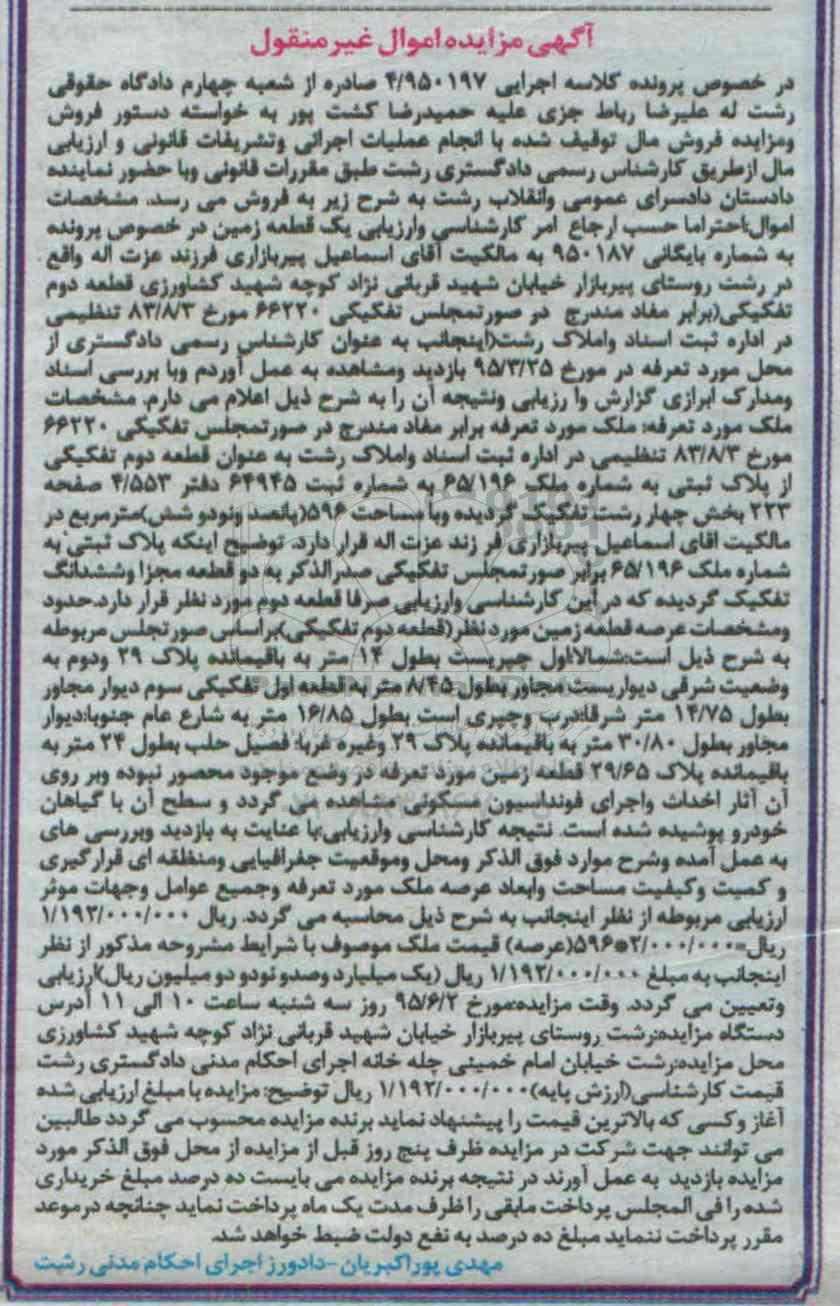 آگهی مزایده اموال غیر منقول
در خصوص پرونده کلاسه اجرایی ۴/۹۵۰۱۹۷ صادره از شعبه چهارم دادگاه حقوقی
رشت له علیرضا رباط جزی علیه حمیدرضا کشت پور به خواسته دستور فروش
ومزایده فروش مال توقیف شده با انجام عملیات اجرائی وتشریفات قانونی و ارزیابی
مال ازطریق کارشناس رسمی دادگستری رشت طبق مقررات قانونی وبا حضور نماینده
دادستان دادسرای عمومی وانقلاب رشت به شرح زیر به فروش می رسد. مشخصات
اموال:احتراما حسب ارجاع امر کارشناسی وارزیابی یک قطعه زمین در خصوص پرونده
به شماره بایگانی ۹۵۰۱۸۷ به مالکیت آقای اسماعیل پیربازاری فرزند عزت اله واقع
در رشت روستای پیربازار خیابان شهید قربانی نژاد کوچه شهید کشاورزی قطعه دوم
تفکیکی(برابر مفاد مندرج در صورتمجلس تفکیکی ۶۶۲۲۰ مورخ ۸۳/۸/۳ تنظیمی
در اداره ثبت اسناد واملاک رشت)اینجانب به عنوان کارشناس رسمی دادگستری از
محل مورد تعرفه در مورخ ۹۵/۳/۲۵ بازدید ومشاهده به عمل آوردم وبا بررسی اسناد
ومدارک ابرازی گزارش وا رزیابی ونتیجه آن را به شرح ذیل اعلام می دارم. مشخصات
ملک مورد تعرفه: ملک مورد تعرفه برابر مفاد مندرج در صورتمجلس تفکیکی ۶۶۲۲۰
مورخ ۸۳/۸/۳ تنظیمی در اداره ثبت اسناد واملاک رشت به عنوان قطعه دوم تفکیکی
از پلاک ثبتی به شماره ملک ۶۵/۱۹۶ به شماره ثبت ۶۴۹۴۵ دفتر ۴/۵۵۳ صفحه
۲۲۳ بخش چهار رشت تفکیک گردیده وبا مساحت ۵۹۶(پانصد ونودو شش)مترمربع در
مالکیت اقای اسماعیل پیربازاری فر زند عزت اله قرار دارد. توضیح اینکه پلاک ثبتی به
شماره ملک ۶۵/۱۹۶ برابر صورتمجلس تفکیکی صدرالذکر به دو قطعه مجزا وششدانگ
تفکیک گردیده که در این کارشناسی وارزیابی صرفا قطعه دوم مورد نظر قرار دارد.حدود
ومشخصات عرصه قطعه زمین مورد نظر(قطعه دوم تفکیکی)براساس صورتجلس مربوطه
به شرح ذیل است:شمالا:اول چپریست بطول ۱۴ متر به باقیمانده پلاک ۲۹ ودوم به
وضعیت شرقی دیواریست مجاور بطول ۸/۴۵ متر به قطعه اول تفکیکی سوم دیوار مجاور
بطول ۱۴/۷۵ متر شرقا:درب وچپری است بطول ۱۶/۸۵ متر به شارع عام جنوبا:دیوار
مجاور بطول ۳۰/۸۰ متر به باقیمانده پلاک ۲۹ وغیره غربا: فصیل حلب بطول ۲۴ متر به
باقیمانده پلاک ۲۹/۶۵ قطعه زمین مورد تعرفه در وضع موجود محصور نبوده وبر روی
آن آثار احداث واجرای فونداسیون مسکونی مشاهده می گردد و سطح آن با گیاهان
خودرو پوشیده شده است. نتیجه کارشناسی وارزیابی:با عنایت به بازدید وبررسی های
به عمل آمده وشرح موارد فوق الذکر ومحل وموقعیت جغرافیایی ومنظقه ای قرارگیری
و کمیت وکیفیت مساحت وابعاد عرصه ملک مورد تعرفه وجمیع عوامل وجهات موثر
ارزیابی مربوطه از نظر اینجانب به شرح ذیل محاسبه می گردد. ریال ۱/۱۹۲/۰۰۰/۰۰۰
ریال=۲/۰۰۰/۰۰۰*۵۹۶(عرصه) قیمت ملک موصوف با شرایط مشروحه مذکور از نظر
اینجانب به مبلغ ۱/۱۹۲/۰۰۰/۰۰۰ ریال (یک میلیارد وصدو نودو دو میلیون ریال)ارزیابی
وتعیین می گردد. وقت مزایده:مورخ ۹۵/۶/۲ روز سه شنبه ساعت ۱۰ الی ۱۱ آدرس
دستگاه مزایده:رشت روستای پیربازار خیابان شهید قربانی نژاد کوچه شهید کشاورزی
محل مزایده:رشت خیابان امام خمینی چله خانه اجرای احکام مدنی دادگستری رشت
قیمت کارشناسی(ارزش پایه)۱/۱۹۲/۰۰۰/۰۰۰ ریال توضیح: مزایده با مبلغ ارزیابی شده
آغاز وکسی که بالاترین قیمت را پیشنهاد نماید برنده مزایده محسوب می گردد طالبین
می توانند جهت شرکت در مزایده ظرف پنج روز قبل از مزایده از محل فوق الذکر مورد
مزایده بازدید به عمل آورند در نتیجه برنده مزایده می بایست ده درصد مبلغ خریداری
شده را فی المجلس پرداخت مابقی را ظرف مدت یک ماه پرداخت نماید چنانچه درموعد
مقرر پرداخت ننماید مبلغ ده درصد به نفع دولت ضبط خواهد شد.
مهدی پوراکبریان -دادورز اجرای احکام مدنی رشت